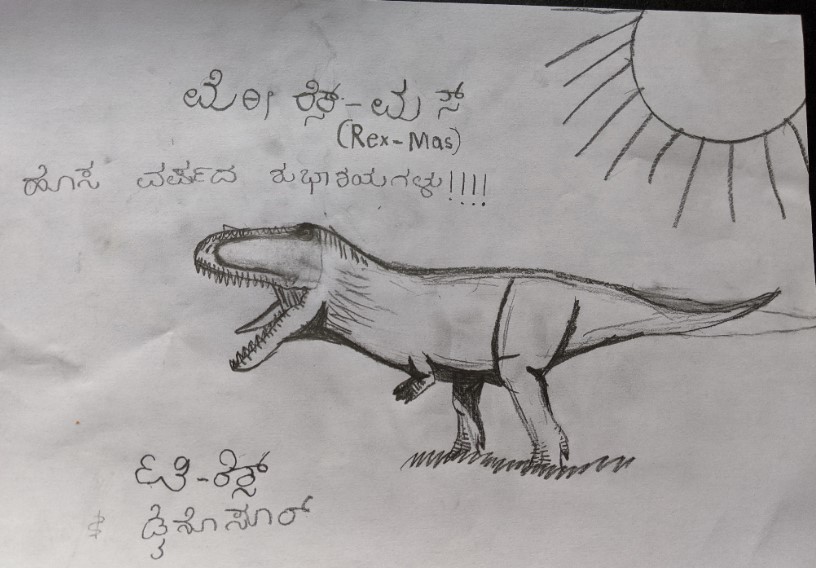 ಮೆರಿ ರೆಕ್ಸ್-ಮಸ್
(Rex-Mas)
ಹೊಸ ವರ್ಷದ ಶುಭಾಶಯಗಳು!!!!
ಟಿ-ರೆಕ್ಸ್
ಡೈನೊಸೂರ್